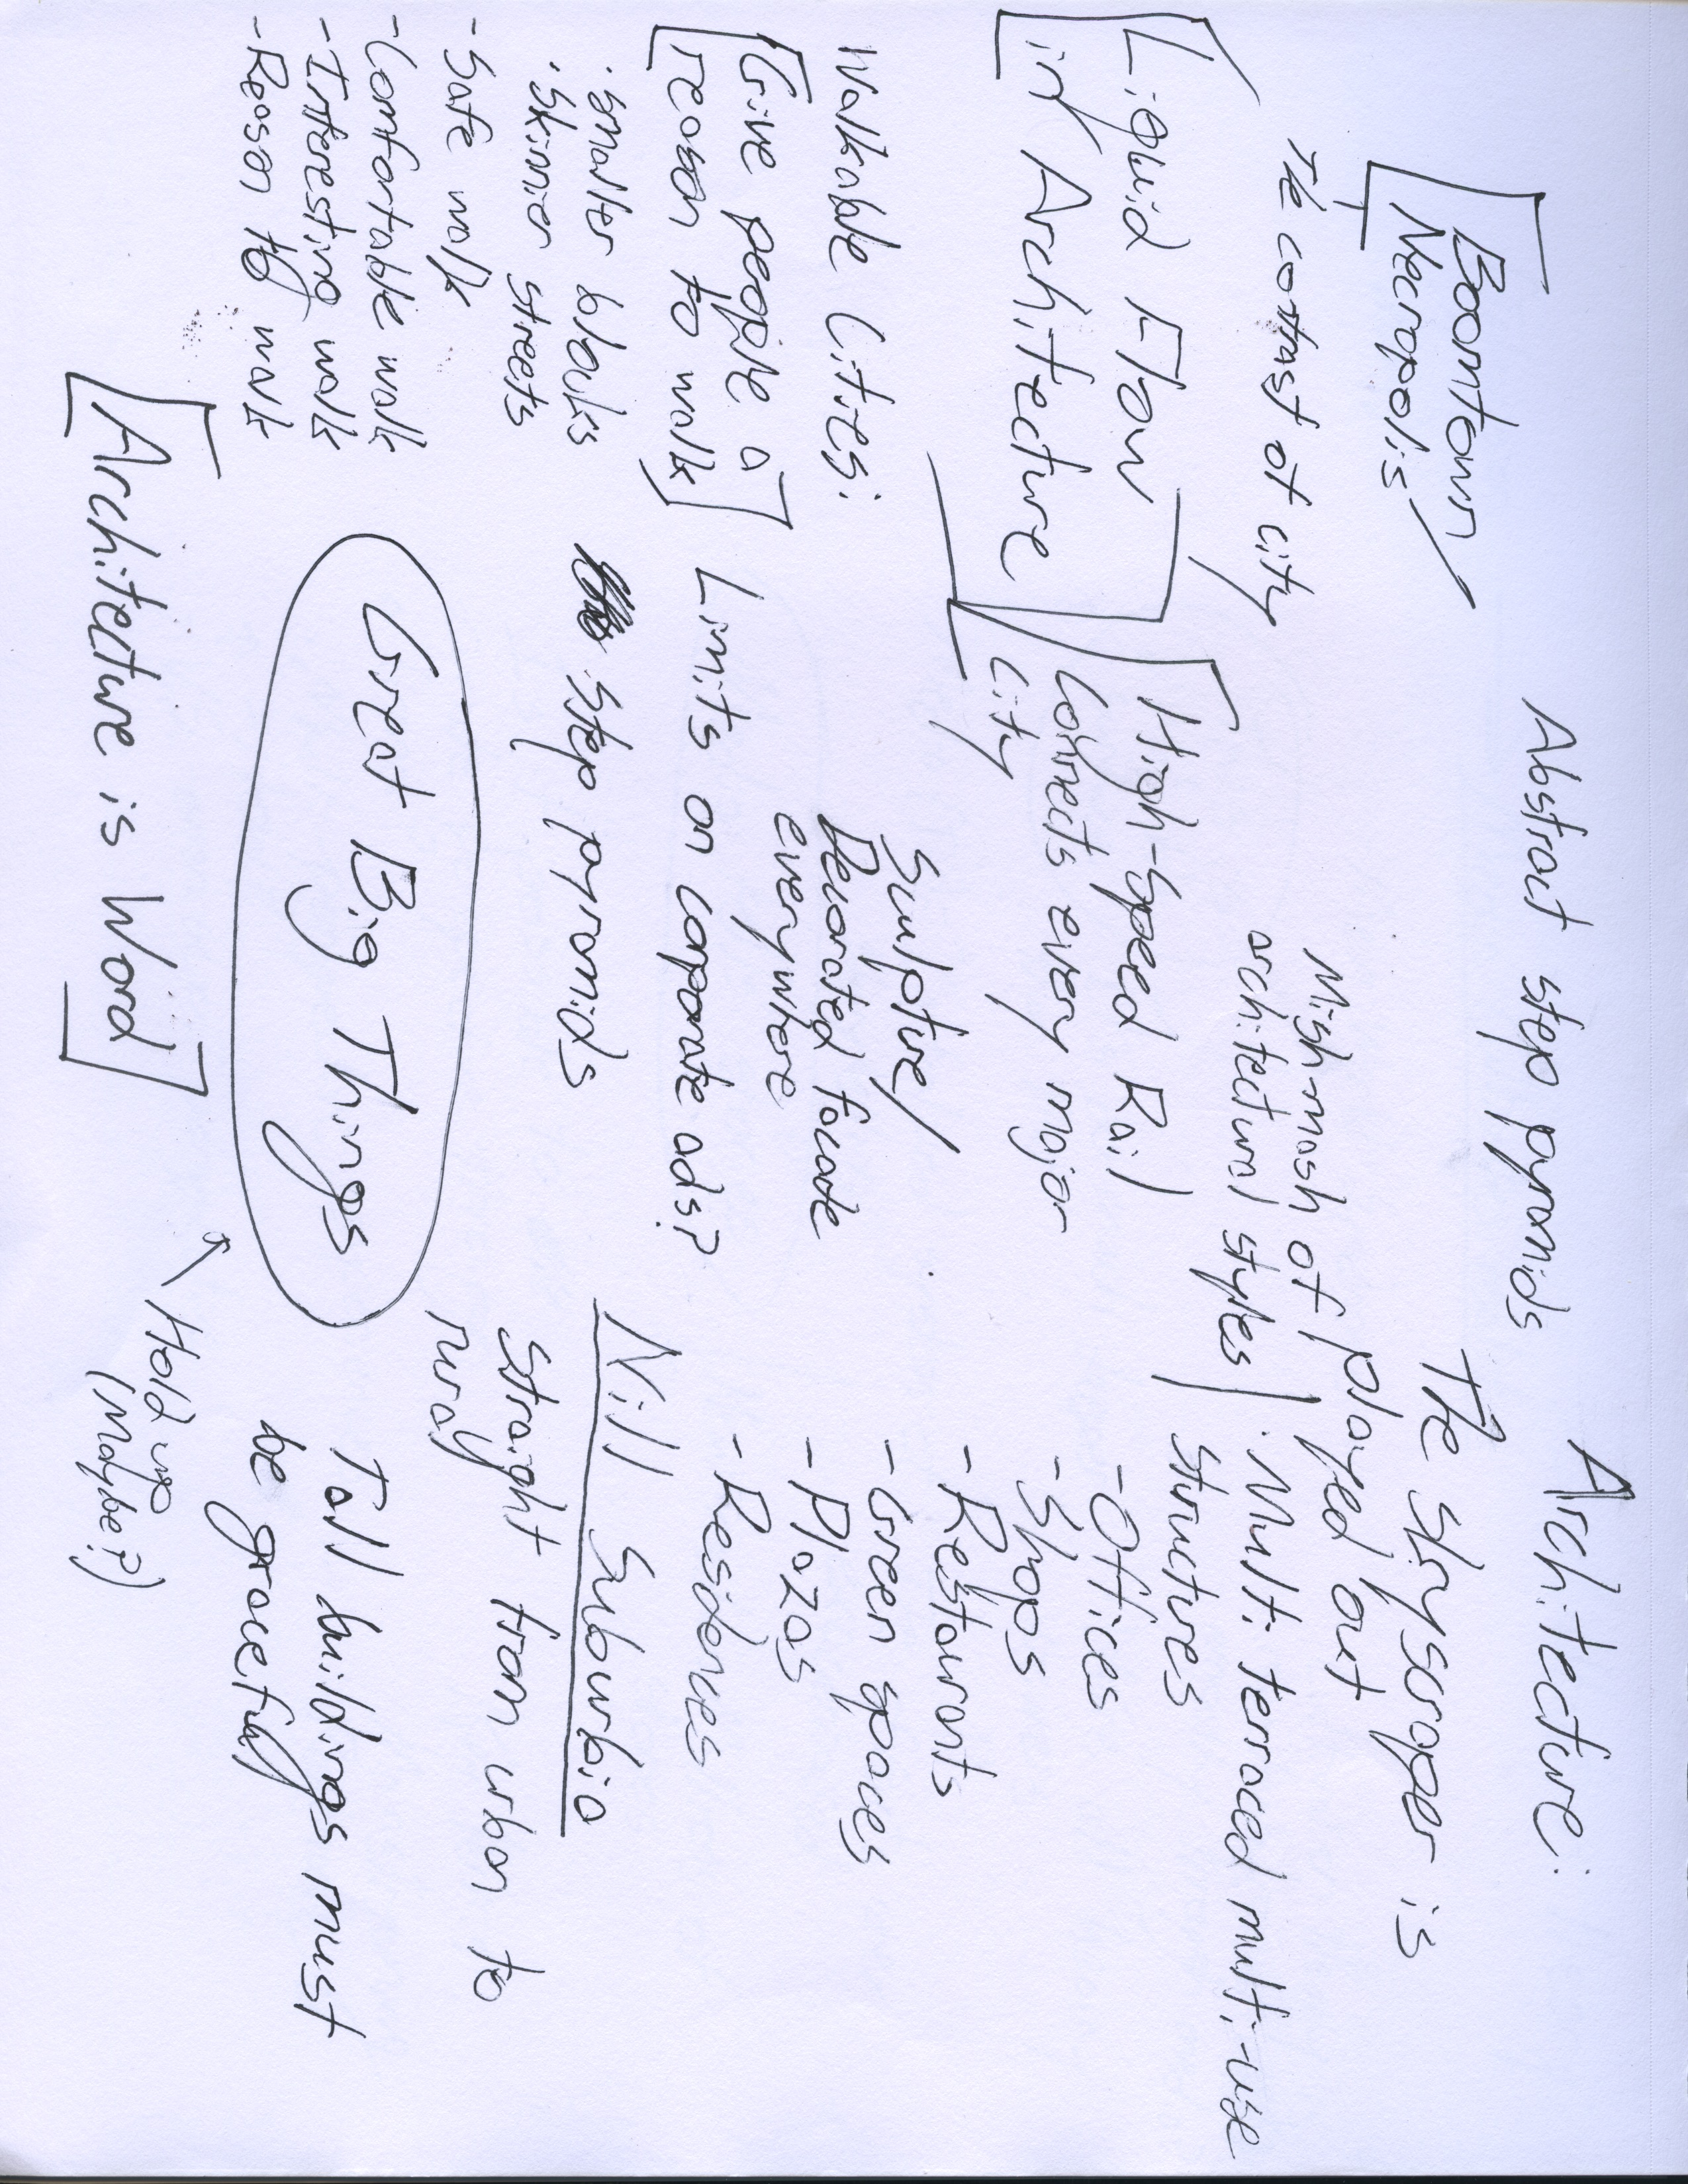 Boomtown/
Necropolis
The contrast of city
Liquid Flow
in Architecture
Walkable Cities:
Give people a
reason to walk
· Smaller blocks
· Skinnier streets
- Safe walk
- Comfortable walk
- Interesting walk
- Reason to walk
Architecture is Word
Abstract step pyramids
Mish-mash of
architectural styles
High-Speed Rail
connects every major
city
Sculpture/
Decorated facade
everywhere
Limits on corporate ads?
Step pyramids
Great Big Things
Architecture:
The skyscraper is
played out
· Multi terraced multi-use
structures
- Offices
- Shops
- Restaurants
- Green spaces
- Plazas
- Residences
Kill Suburbia
Straight from urban to
rural
Tall buildings must
be graceful
Hold up
(Maybe?)